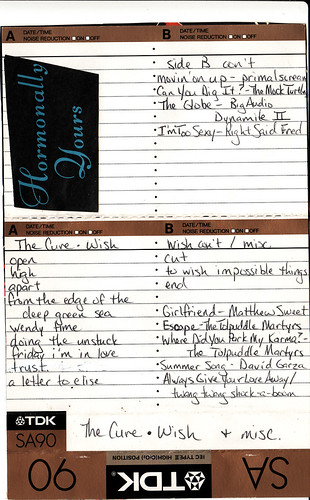 A DATE/TIME
NOISE REDUCTION ON OFF
B DATE/TIME
NOISE REDUCTION ON OFF
Hormonally
Yours
side B con't
• movin' on up - primal scream
• Can You Dig It? - The Mock Turtles
• The Globe - Big Audio
Dynamite II
• I'm Too Sexy - Right Said Fred
A DATE/TIME
NOISE REDUCTION ON OFF
The Cure • Wish
open
high
apart
from the edge of the
deep green sea
wendy time
doing the unstuck
friday i'm in love
trust
a letter to elise
B DATE/TIME
NOISE REDUCTION ON OFF
Wish con't / misc.
cut
to wish impossible things
end
Girlfriend - Matthew Sweet
• Escape - The Tolpuddle Martyrs
• Where Did You Park My Karma? -
The Tolpuddle Martyrs
• Summer Song - David Garza
• Always Give Your Love Away /
twang twang shock-a-boom
TDK
SA90
The Cure • Wish + misc.
IEC TYPE II HIGH(CrO2) POSITION
SA
TDK
90